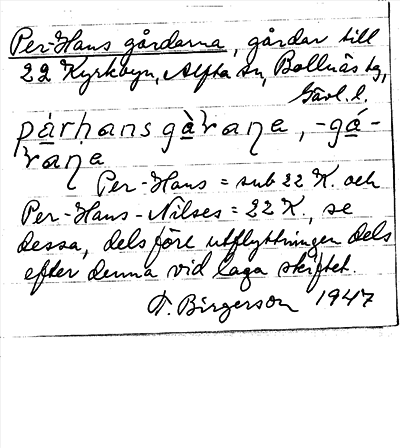 Per-Hans gårdarna, gårdar till
22 Kyrkbyn, Alfta sn, Bollnäs tg,
Gävl. l.
pàrhans gàraŋe, -gá-
raŋe
Per-Hans = sub 22 K. och
Per-Hans-Nilses = 22 K., se
dessa, dels före utflyttningen dels
efter denna vid laga skiftet.
F. Birgerson 1947